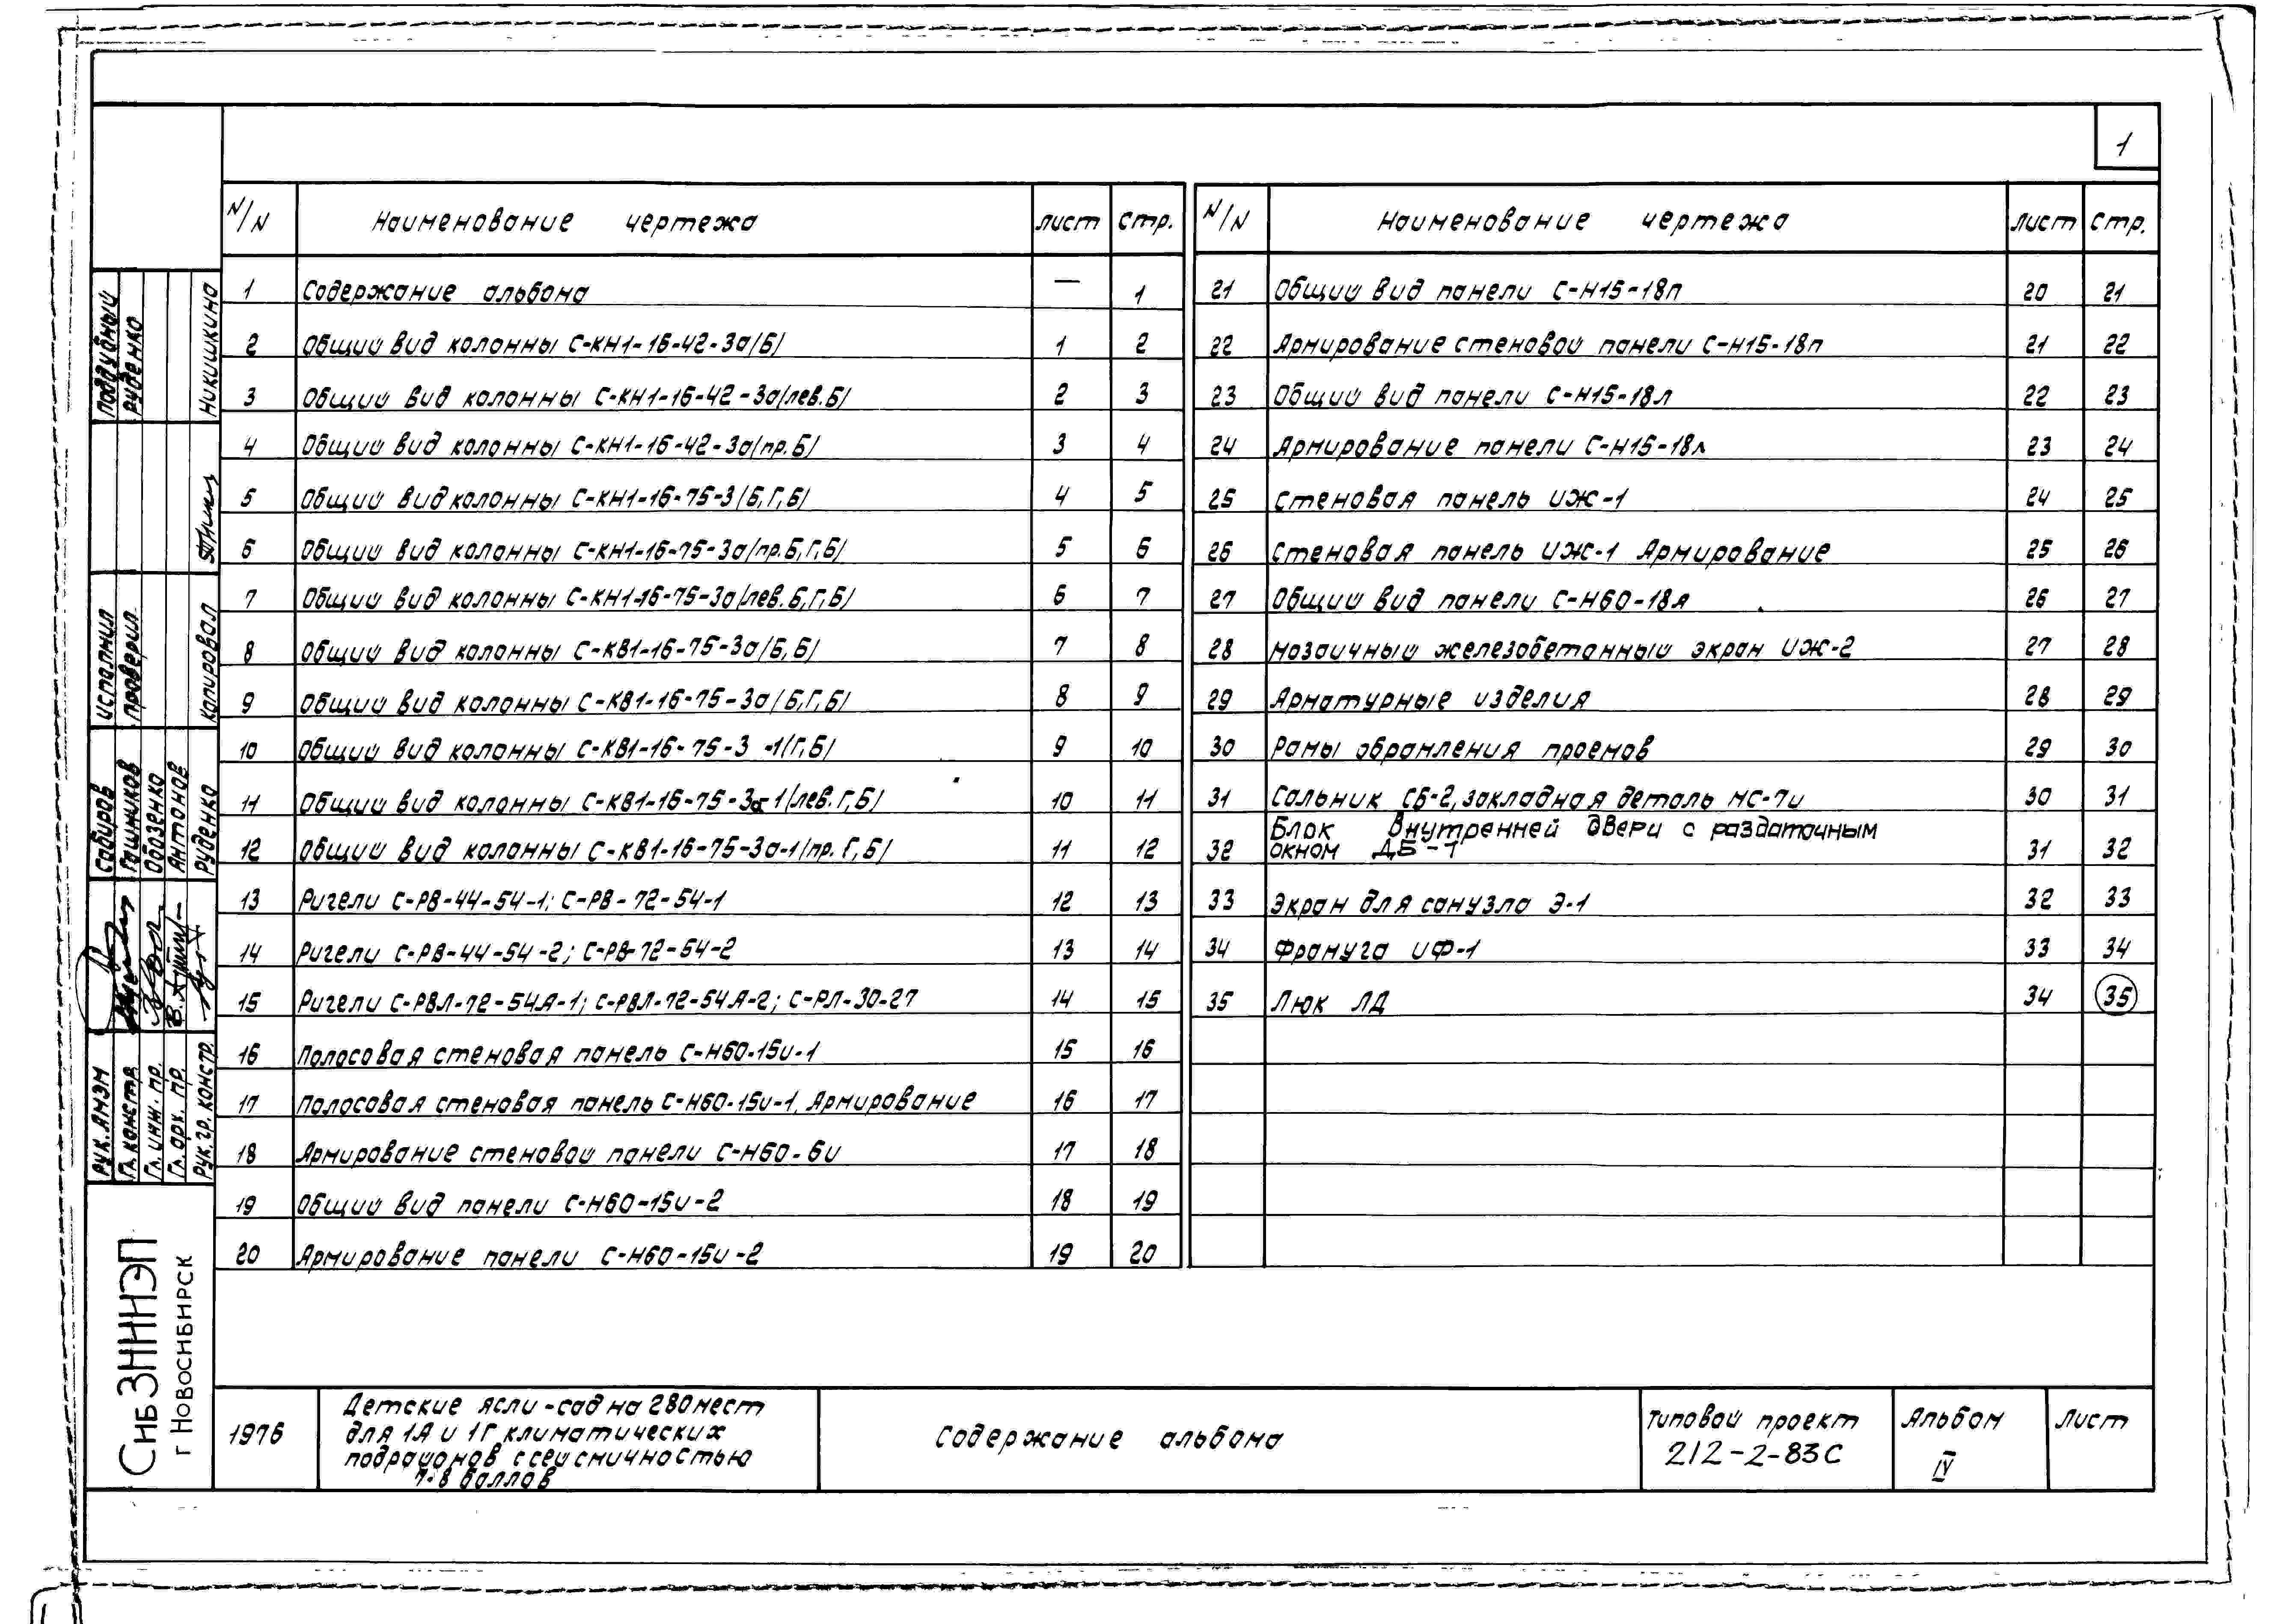 1
N/N Наименование чертежа лист стр.
1 Содержание альбома — 1
2 Общий вид колонны С-КН1-16-42-3а/Б/ 1 2
3 Общий вид колонны С-КН1-16-42-3а/лев.Б/ 2 3
4 Общий вид колонны С-КН1-16-42-3а/пр.Б/ 3 4
5 Общий вид колонны С-КН1-16-75-3/Б,Г,Б/ 4 5
6 Общий вид колонны С-КН1-16-75-3а/пр.Б,Г,Б/ 5 6
7 Общий вид колонны С-КН1-16-75-3а/лев.Б,Г,Б/ 6 7
8 Общий вид колонны С-КВ1-16-75-3а/Б,Б/ 7 8
9 Общий вид колонны С-КВ1-16-75-3а/Б,Г,Б/ 8 9
10 Общий вид колонны С-КВ1-16-75-3 -1/Г,Б/ 9 10
11 Общий вид колонны С-КВ1-16-75-3а-1/лев.Г,Б/ 10 11
12 Общий вид колонны С-КВ1-16-75-3а-1/пр.Г,Б/ 11 12
13 Ригели С-РВ-44-54-1; С-РВ-72-54-1 12 13
14 Ригели С-РВ-44-54-2; С-РВ-72-54-2 13 14
15 Ригели С-РВЛ-72-54Я-1; С-РВЛ-72-54Я-2; С-РЛ-30-27 14 15
16 Полосовая стеновая панель С-Н60-15и-1 15 16
17 Полосовая стеновая панель С-Н60-15и-1. Армирование 16 17
18 Армирование стеновой панели С-Н60-6и 17 18
19 Общий вид панели С-Н60-15и-2 18 19
20 Армирование панели С-Н60-15и-2 19 20
N/N Наименование чертежа лист стр.
21 Общий вид панели С-Н15-18п 20 21
22 Армирование стеновой панели С-Н15-18п 21 22
23 Общий вид панели С-Н15-18л 22 23
24 Армирование панели С-Н15-18л 23 24
25 Стеновая панель ИЖ-1 24 25
26 Стеновая панель ИЖ-1 Армирование 25 26
27 Общий вид панели С-Н60-18я 26 27
28 Мозаичный железобетонный экран ИЖ-2 27 28
29 Арматурные изделия 28 29
30 Рамы обрамления проемов 29 30
31 Сальник СБ-2, закладная деталь МС-7и 30 31
Блок внутренней двери с раздаточным
32 окном ДБ-1 31 32
33 Экран для санузла Э-1 32 33
34 Фрамуга ИФ-1 33 34
35 Люк ЛД 34 35
Поддубный
Руденко
Никишкина
исполнил
проверил
копировал
Сабиров
Гашников
Обозенко
Антонов
Руденко
Рук. АМЭМ
Гл. констр.
Гл. инж. пр.
Гл. арх. пр.
Рук. гр. констр.
СибЗНИИЭП
г Новосибирск
1976
Детские ясли-сад на 280 мест
для 1А и 1Г климатических
подрайонов с сейсмичностью
7-8 баллов
Содержание альбома
Типовой проект
212-2-83С
Альбом
IV
Лист